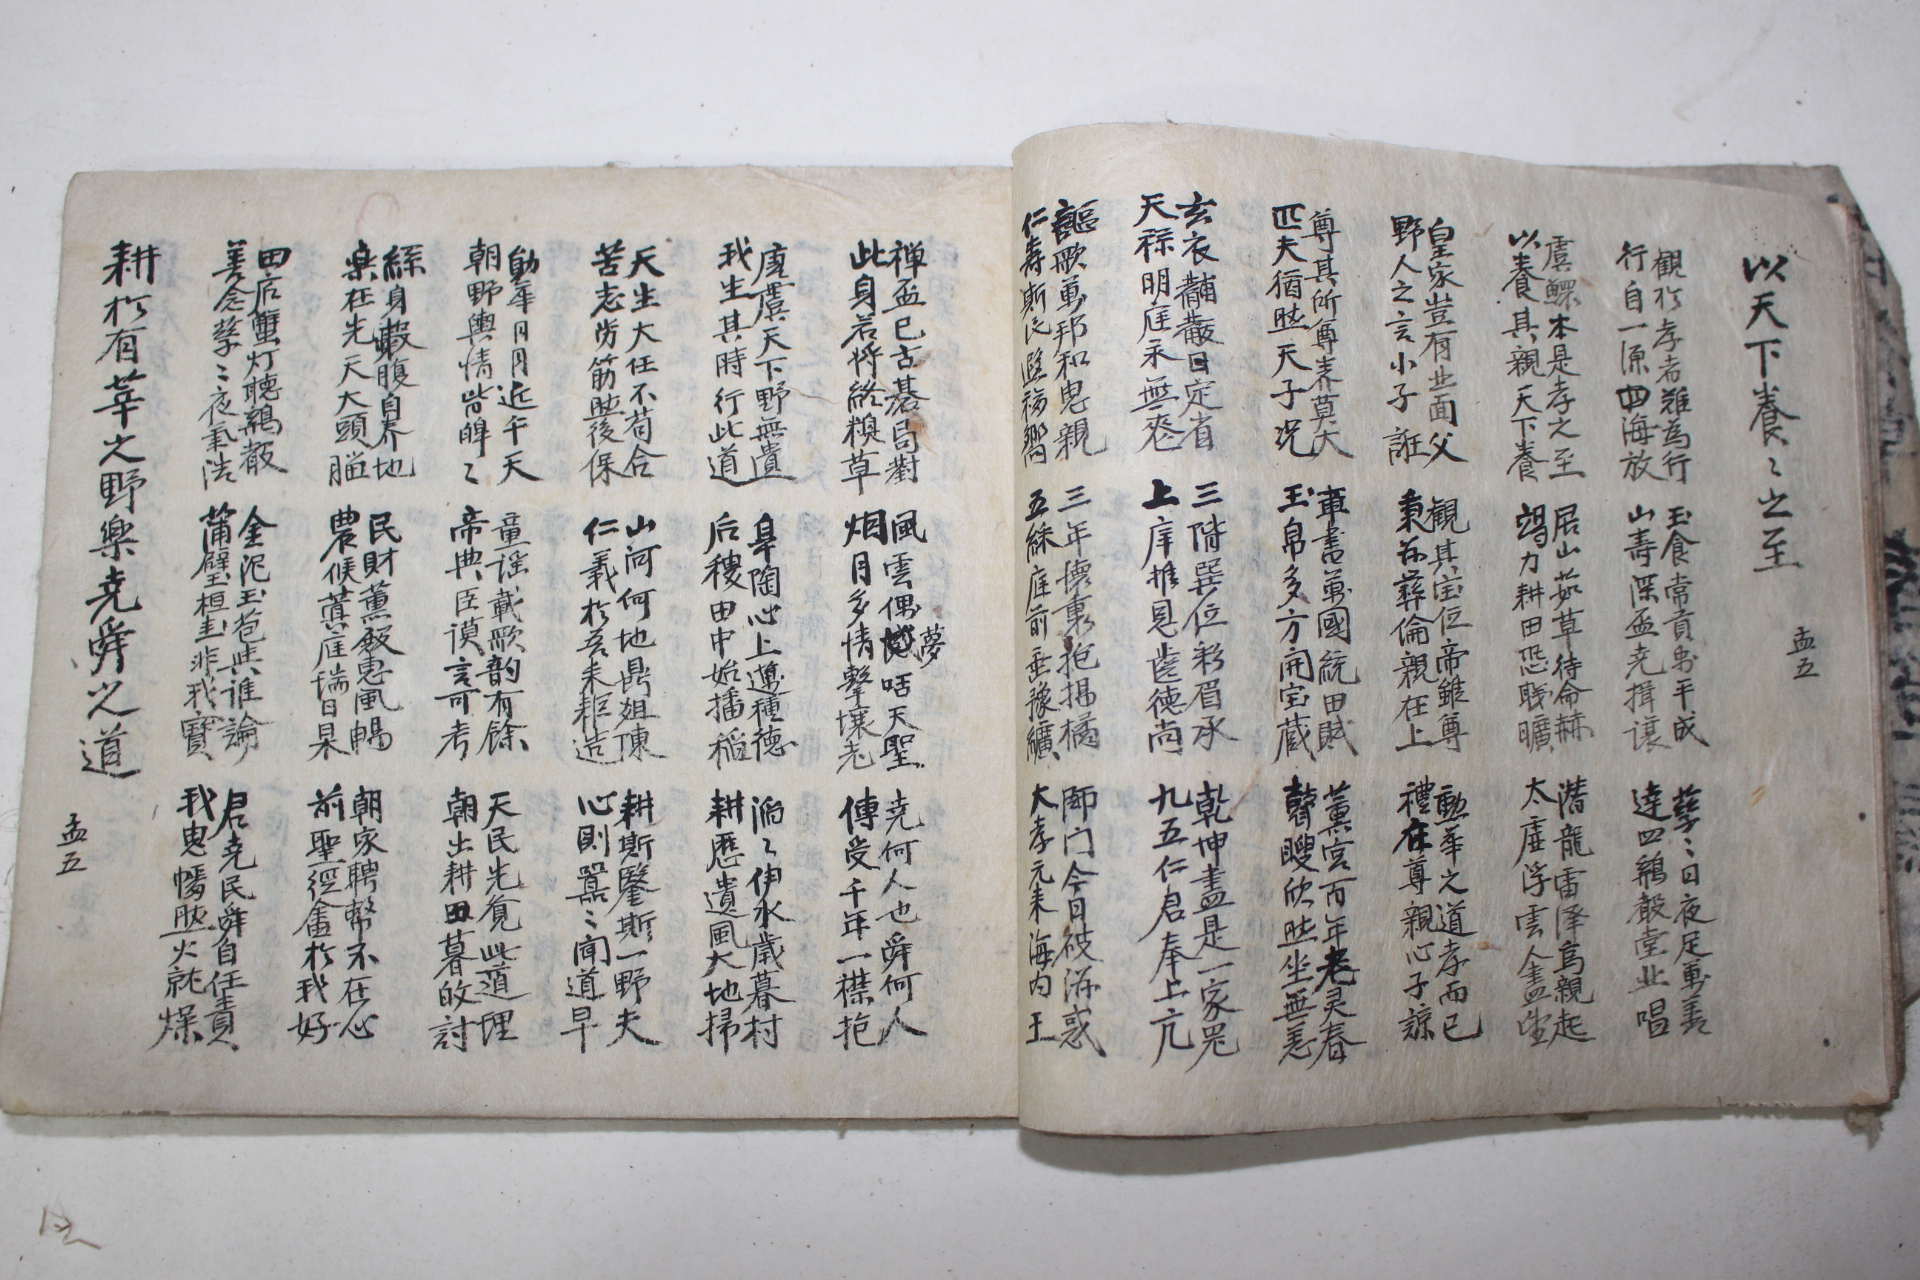 以天下養〻之至
孟五
觀於孝者難為行
行自一源四海放
玉食常貢禹平成
山壽深盃堯揖讓
孳〻日夜足萬善
達四鷄聲堂北唱
虞鰥本是孝之至
以養其親天下養
居山茹草待命赫
竭力耕田恐職曠
潛龍雷澤為親起
太虛浮雲人盡望
皇家豈有北面父
野人之言小子誑
觀其宝位帝雖尊
秉茲彝倫親在上
勳華之道孝而已
禮在尊親心子諒
尊其所尊養莫大
匹夫猶然天子況
車書萬國統田賦
玉帛多方開宝藏
薰宮百年老灵春
瞽瞍欣然坐無恙
玄衣黼黻日定省
天祿明庭永無恙
三階巽位彩眉承
上庠推恩齒德尚
乾坤盡是一家買
九五仁君奉上亢
謳歌萬邦和思親
仁壽斯民遐福嚮
三年懷裏抱揚橘
五絲庭前垂豫纊
師门今日彼泝惑
大孝元來海內王
禅盃已古碁局對
此身若將終糗草
風雲偶夢咶天聖
烟月多情擊壤老
堯何人也舜何人
傳受千年一襟抱
唐虞天下野無遺
我生其時行此道
皐陶心上邁種德
后稷田中始播稻
滔〻伊水歲暮村
耕歷遺風大地掃
天生大任不苟合
苦志勞筋然後保
山河何地鼎俎陳
仁義於吾耒耟造
耕斯鑿斯一野夫
心則囂〻聞道早
勛華日月近午天
朝野輿情皆皥〻
童謠載歌韵有餘
帝典臣謨言可考
天民先覓此道理
朝出耕田暮的討
綠身蝦腹自界地
楽在先天大頭腦
民財薰殿惠風暢
農候蓂庭瑞日杲
朝家聘幣不在心
前聖徑畬於我好
田后蟹灯聴鷄散
善念孳〻夜氣浩
金泥玉芭共誰論
蒲璧桓圭非我寶
君堯民舜自任責
我思幡然火就燥
耕於有莘之野樂堯舜之道
孟五